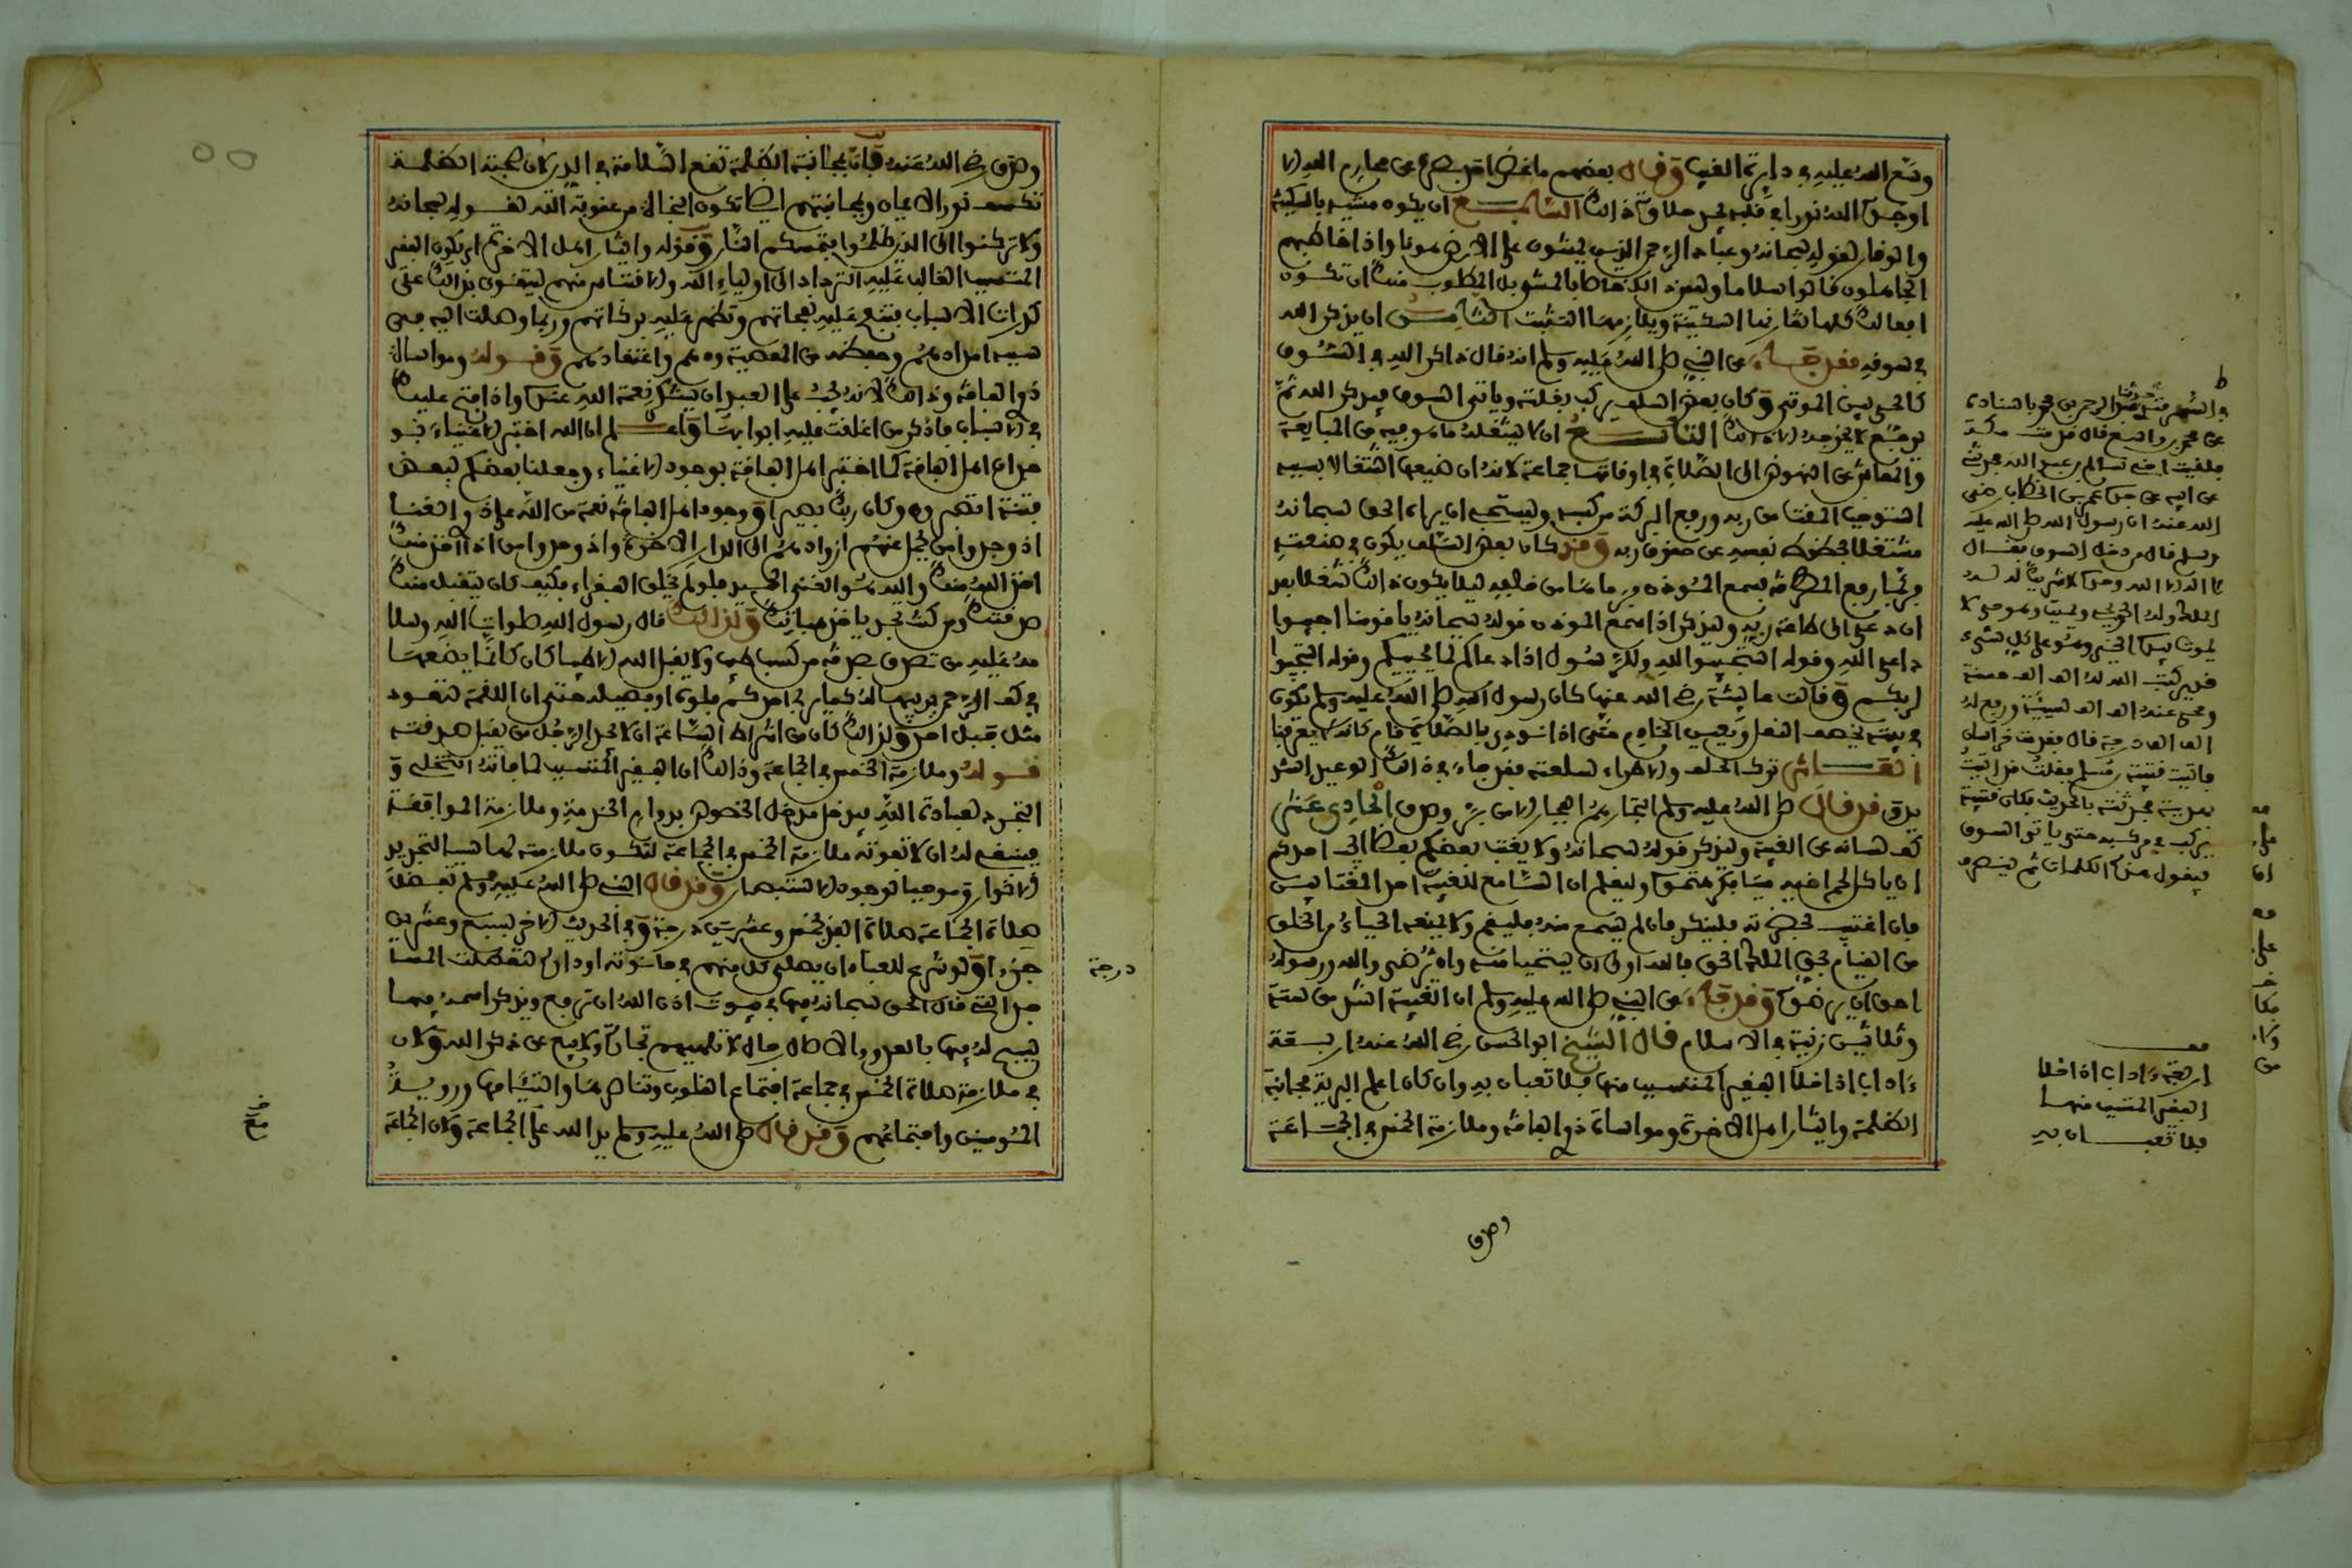 وسّع الله عليه في دايرة الغيب وقال بعضهم ما غض احد بصره عن محارم الله الا
اوجد الله نورا في قلبه يجد حلاوة ذلك السابع ان يكون مشيه بالسكينة
والوقار لقوله سبحانه وعباد الرحمن الذين يمشون على الارض هونا واذا خاطبهم
الجاهلون قالوا سلاما وليس هذا خاصا بالمشي بل المطلوب منك ان تكون
افعالك كلها تقارنها السكينة ويلازمها التثبت الثامن ان يذكر الله
في سوقه فقد جاء عن النبي صلى الله عليه وسلم انه قال ذاكر الله في السوق
كالحي بين الموتى وكان بعض السلف يركب بغلته وياتي السوق فيذكر الله ثم
يرجع لا يخرجه الا ذلك التاسع ان لا يشغله ما هو فيه من المبايعة
والمعاش عن النهوض الى الصلاة في اوقاتها جماعة لانه ان ضيعها اشتغالا بسببه
استوجب المقت من ربه ورفع البركة من كسبه وليستحي ان يراه الحق سبحانه
مشتغلا بحظوظ نفسه عن حقوق ربه وقد كان بعض السلف يكون في صنعته
فربما رفع المطرقة فسمع المؤذن فرماها من خلفه ليلا يكون ذلك شغلا بعد
ان دعي الى طاعة ربه وليذكر اذا سمع المؤذن قوله سبحانه يا قومنا اجيبوا
داعي الله وقوله استجيبوا لله وللرسول اذا دعاكم لما يحييكم وقوله استجيبوا
لربكم وقالت عايشة رضي الله عنها كان رسول الله صلى الله عليه وسلم يكون
في بيته يخصف النعل ويعين الخادم حتى اذا نودي بالصلاة قام كانه لا يعرفنا
العاشر ترك الحلف والاطراء لسلعته فقد جاء في ذلك الوعيد الشد
يد وقد قال صلى الله عليه وسلم التجار هم الفجار الا من بر وصدق الحادي عشر
كف لسانه عن الغيبة وليذكر قوله سبحانه ولا يغتب بعضكم بعضا ايحب احدكم
ان ياكل لحم اخيه ميتا فكرهتموه وليعلم ان السامع للغيبة احد المغتابين
فان اغتيب بحضرته فلينكر فان لم يسمع منه فليقم ولا يمنعه الحياء من الخلق
من القيام بحق الملك الحق فالله اولى ان يستحيا منه وان يرضى والله ورسوله
احق ان يرضوه وقد جاء عن النبي صلى الله عليه وسلم ان الغيبة اشد من ستة
وثلاثين زنية في الاسلام قال الشيخ ابو الحسن رضي الله عنه اربعة
ءاداب اذا خلا الفقير المتسبب منها فلا تعبان به وان كان اعلم البرية مجانبة
الظلمة وايثار اهل الاخرة ومواساة ذوي الفاقة وملازمة الخمس في الجماعة
عن محمد بن واسع قال قدمت مكة
فلقيت اخي سالم بن عبد الله فحدثني
عن ابيه عن جده عمر بن الخطاب رضي
الله عنه ان رسول الله صلى الله عليه
وسلم قال من دخل السوق فقال
لا اله الا الله وحده لا شريك له له
الملك وله الحمد يحيي ويميت وهو حي لا
يموت بيده الخير وهو على كل شيء
قدير كتب الله له الف الف حسنة
ومحي عنه الف الف سيئة ورفع له
الف الف درجة قال فقدمت خراسان
فاتيت قتيبة بن مسلم فقلت قد اتيتك
بهدية فحدثته بالحديث فكان قتيبة
يركب في مركبه حتى ياتي السوق
فيقول هذه الكلمات ثم ينصرف
اربعة ءاداب اذا خلا
الفقير المتسبب منها
فلا تعبان به
وصدق
وصدق رضي الله عنه فان بمجانبة الظلمة تقع السلامة في الدين لان صحبة الظلمة
تكسف نور الايمان ومجانبتهم ايضا تكون النجاة من عقوبة الله لقوله سبحانه
ولا تركنوا الى الذين ظلموا فتمسكم النار وقوله وايثار اهل الاخرة اي يكون الفقير
المتسبب الغالب عليه الترداد الى اولياء الله والاقتباس منهم ليتقوى بذلك على
كدرات الاسباب فتنفح عليه نفحاتهم وتظهر عليه بركاتهم وربما وصلت اليه في
سببه امدادهم وحفظه من المعصية ودهم واعتقادهم وقوله ومواساة
ذوي الفاقة وذلك لانه يجب على العبد ان يشكر نعمة الله عنده واذا فتح عليك
في الاسباب فاذكر من اغلقت عليه ابوابها واعلم ان الله اختبر الاغنياء بو
جود اهل الفاقة كما اختبر اهل الفاقة بوجود الاغنياء وجعلنا بعضكم لبعض
فتنة اتصبرون وكان ربك بصيرا ووجود اهل الفاقة نعمة من الله على ذوي الغنا
اذ وجدوا من يحمل عنهم ازوادهم الى الدار الاخرة واذ وجدوا من اذا اخذ منك
اخذ الله منك والله هو الغني الحميد فلو لم يخلق الفقراء فكيف كان يتقبل منك
صدقتك ومن كنت تجد ياخذ هباتك ولذلك قال رسول الله صلوات الله وسلا
مه عليه من تصدق بصدقة من كسب طيب ولا يقبل الله الا طيبا كان كانما يضعها
في كف الرحمن يربيها له كما يربي احدكم فلوه او فصيله حتى ان اللقمة لتعود
مثل جبل احد ولذلك كان من اشراط الساعة ان لا يجد الرجل من يقبل صدقته
قوله وملازمة الخمس في الجماعة وذلك ان الفقير المتسبب لما فاته التخلي و
التجرد لعبادة الله فيدخل مدخل الخصوص بدوام الخدمة وملازمة الموافقة
فينبغي له ان لا تفوته ملازمة الخمس في الجماعة لتكون ملازمته لها سببا لتجديد
الانوار وموجبا لوجود الاستبصار وقد قال النبي صلى الله عليه وسلم تفضل
صلاة الجماعة صلاة الفذ بخمس وعشرين درجة وفي الحديث الاخر بسبع وعشرين
جزءا ولو شرع للعباد ان يصلي كل منهم في حانوته او داره لتعطلت المسا
جد التي قال الحق سبحانه فيها في بيوت اذن الله ان ترفع ويذكر فيها اسمه
يسبح له فيها بالغدو والاصال رجال لا تلهيهم تجارة ولا بيع عن ذكر الله ولان
في ملازمة صلاة الخمس في جماعة اجتماع القلوب وتناصرها والتئامها ورويةُ
المومنين واجتماعهم وقد قال صلى الله عليه وسلم يد الله على الجماعة ولان الجماعة
درجة